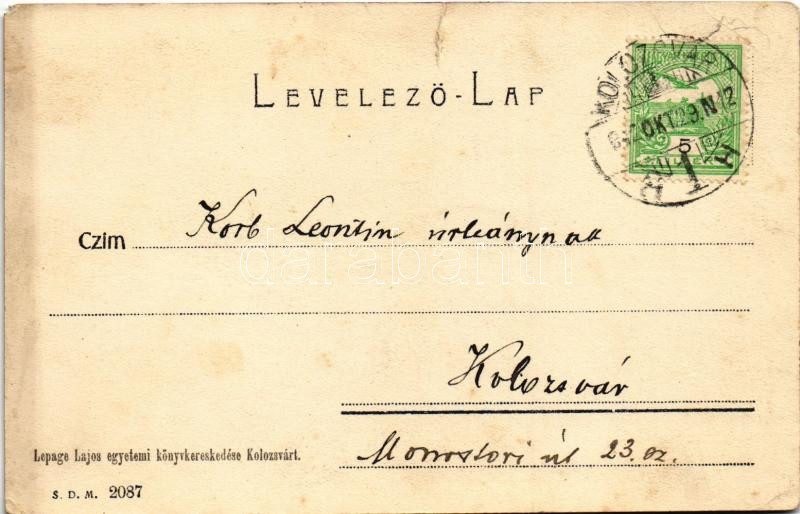 LEVELEZŐ-LAP
KOLOZSVÁR
OKT 29. N 12
5
1
Czim Korb Leontin úrleánynak
darabanth
Kolozsvár
Monostori út 23. sz.
Lepage Lajos egyetemi könyvkereskedése Kolozsvárt.
S. D. M. 2087